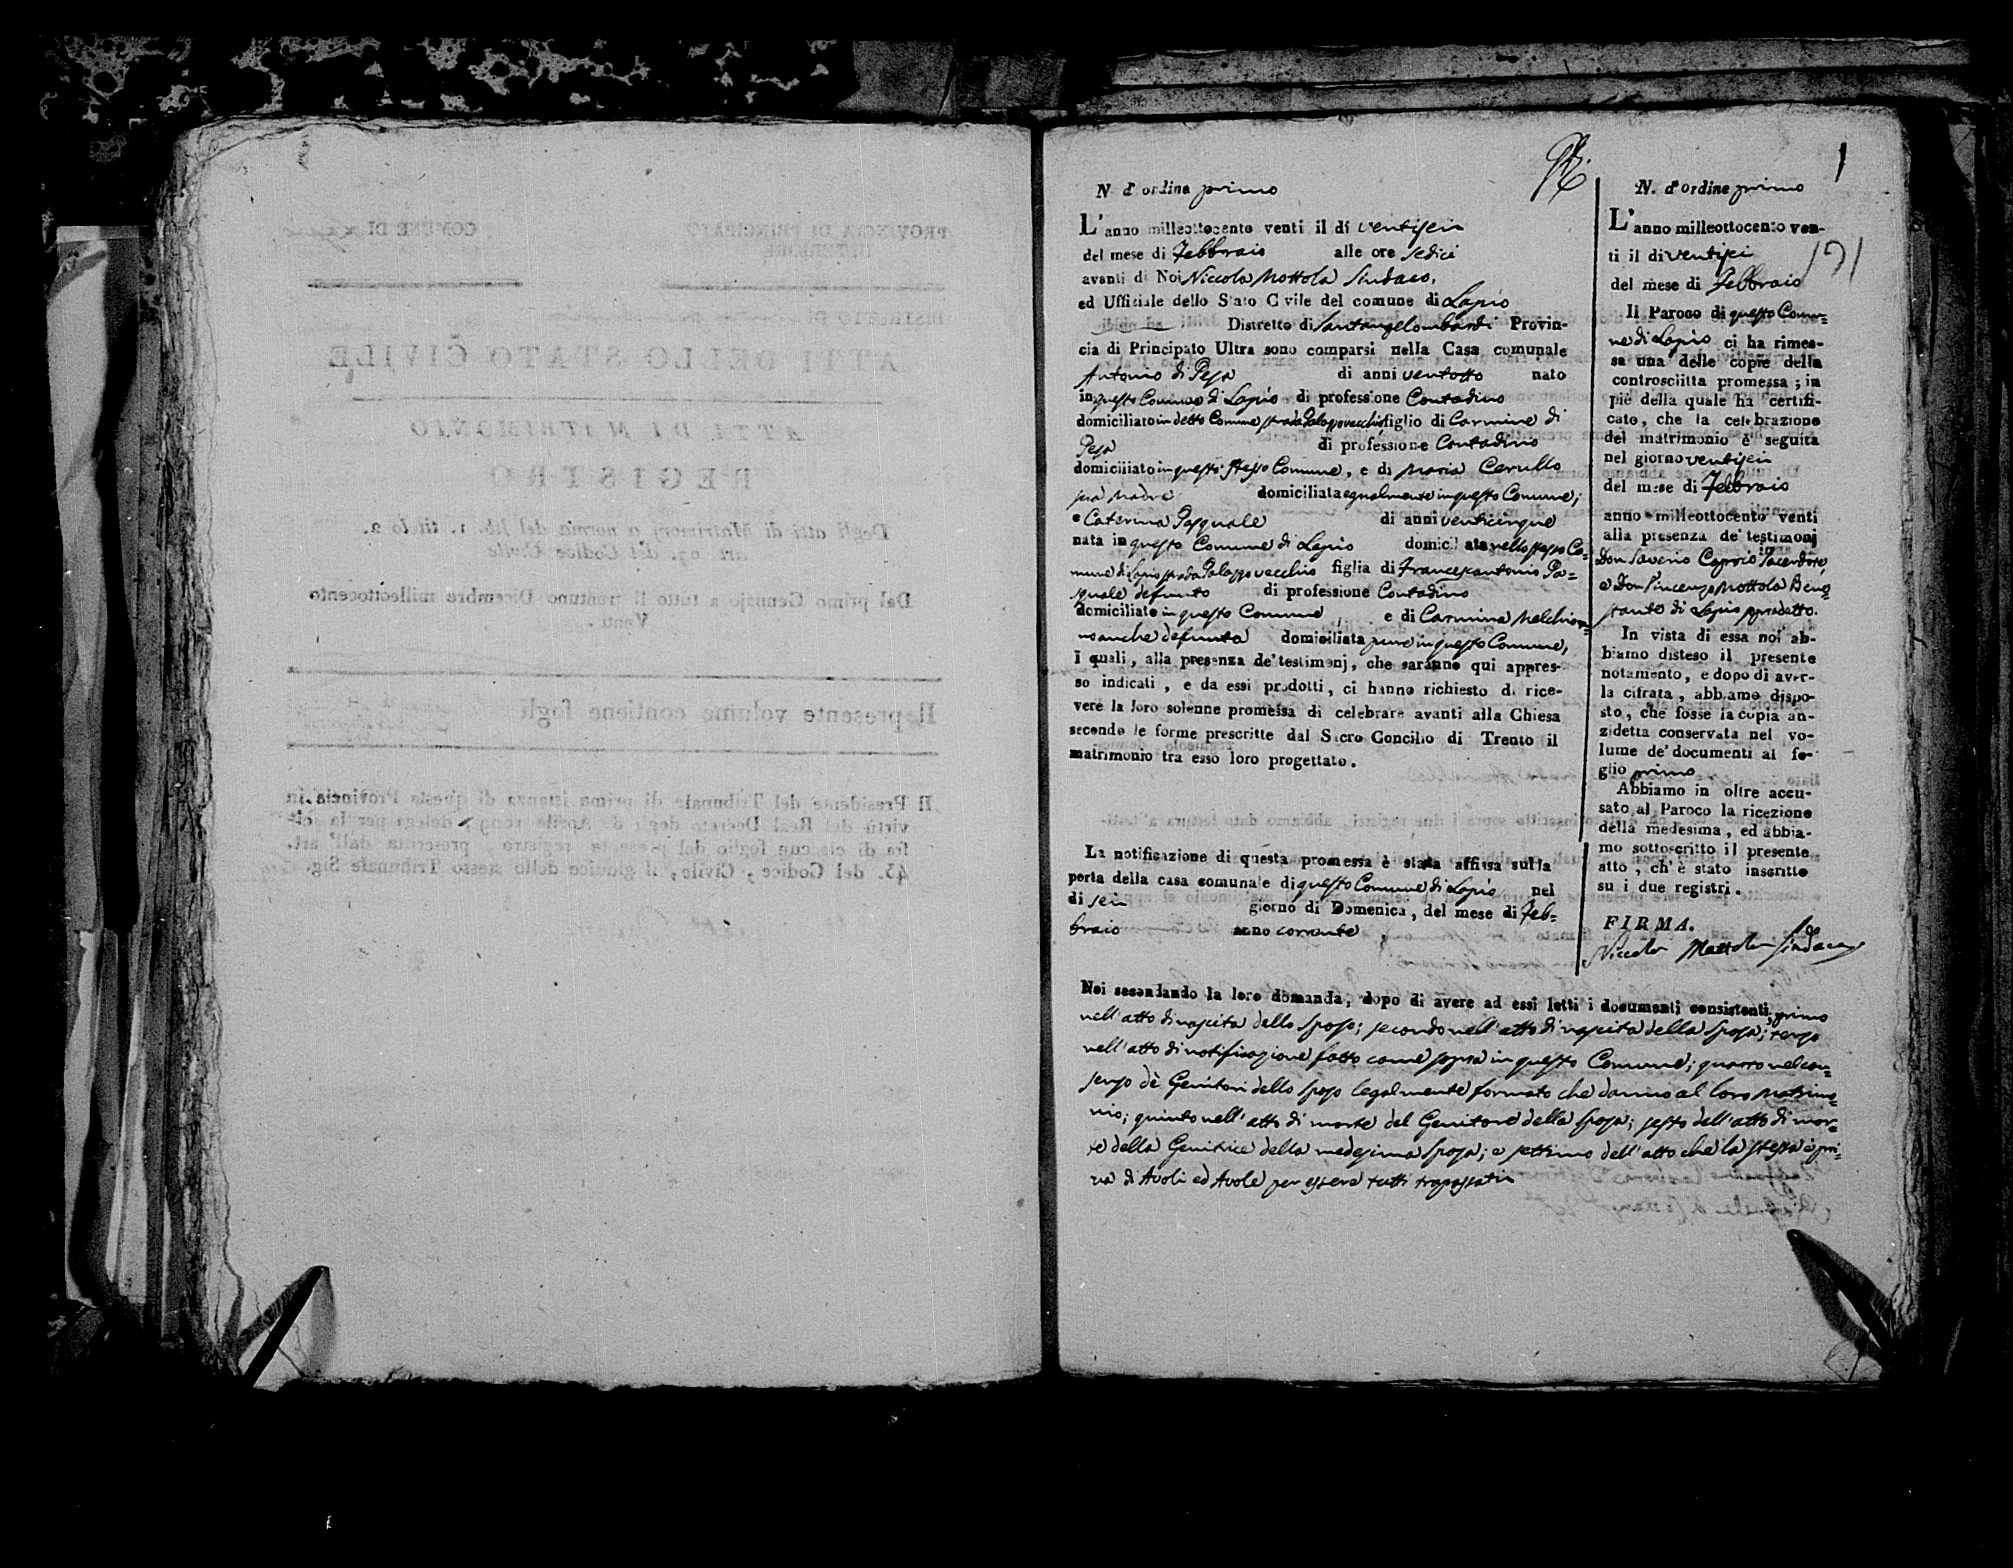 1
N. d'ordine primo
L'anno milleottocento venti il dì ventisei
del mese di Febbraio alle ore sedici
avanti di Noi Niccola Mottola Sindaco,
ed Uffiziale dello Stato Civile del comune di Lapio
Distretto di Santangelombardi Provin-
cia di Principato Ultra sono comparsi nella Casa comunale
Antonio di Pesa di anni ventotto nato
in questo Comune di Lapio di professione Contadino
domiciliato in detto Comune strada Palazzovecchio figlio di Carmine di
Pesa di professione Contadino
domiciliato in questo stesso Comune, e di Maria Cerullo
sua Madre domiciliata egualmente in questo Comune;
e Caterina Pasquale di anni venticinque
nata in questo Comune di Lapio domiciliata nello stesso Co=
mune di Lapio strada Palazzovecchio figlia di Francescantonio Pa=
squale defunto di professione Contadino
domiciliato in questo Comune, e di Carmina Melchion=
no anche defunta domiciliata pure in questo Comune;
i quali, alla presenza de' testimonj, che saranno qui appres-
so indicati, e da essi prodotti, ci hanno richiesto di rice-
vere la loro solenne promessa di celebrare avanti alla Chiesa
secondo le forme prescritte dal Sacro Concilio di Trento il
matrimonio tra esso loro progettato.
La notificazione di questa promessa è stata affissa sulla
porta della casa comunale di questo Comune di Lapio nel
di sei giorno di Domenica, del mese di Feb=
braio anno corrente,
Noi secondando la loro domanda, dopo di avere ad essi letti i documenti consistenti, primo
nell'atto di nascita dello Sposo; secondo nell'atto di nascita della Sposa; terzo
nell'atto di notificazione fatto come sopra in questo Comune; quarto nel con=
senso dè Genitori dello sposo legalmente formato che danno al loro Matrimo=
nio; quinto nell'atto di morte del Genitore della Sposa; sesto dell'atto di mor=
te della Genitrice della medesima Sposa; e settimo dell'atto che la stessa è pri=
va di Avoli ed Avole per essere tutti trapassati
N. d'ordine primo
L'anno milleottocento ven-
ti il di ventisei
del mese di Febbraio
Il Paroco di questo Comu=
ne di Lapio ci ha rimes-
sa una delle copie della
controscritta promessa; in
piè della quale ha certifi-
cato, che la celebrazione
del matrimonio è seguita
nel giorno ventisei
del mese di Febbraio
anno milleottocento venti
alla presenza de' testimonj
Don Saverio Caprio Sacerdote,
e Don Vincenzo Mottola Bene=
stante di Lapio
In vista di essa noi ab-
biamo disteso il presente
notamento, e dopo di aver-
la cifrata, abbiamo dispo-
sto, che fosse la copia an-
zidetta conservata nel vo-
lume de' documenti al fo-
glio primo
Abbiamo in oltre accu-
sato al Paroco la ricezione
della medesima, ed abbia-
mo sottoscritto il presente
atto, ch'è stato inscritto
su i due registri.
FIRMA.
Niccola Mottola Sindaco